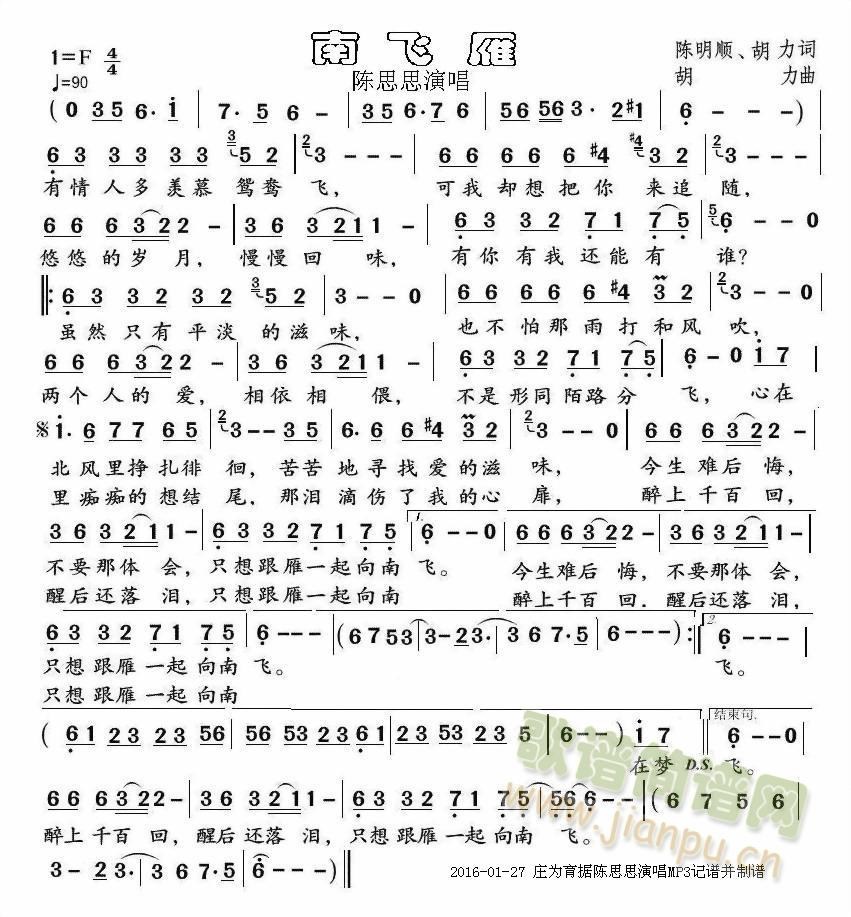 南飞雁
1=F 4/4
♩=90
陈思思演唱
陈明顺、胡 力词
胡 力曲
( 0 3 5 6· i | 7· 5 6 - | 3 5 6·7 6 | 56 563· 2 #1 | 6 - - ) |
6 3 3 3 3 3 5 2 | 3 - - - | 6 6 6 6 6 #4 3 2 | 3 - - 0 |
有情 人多 羡慕 鸳鸯 飞， 可我 却想 把你 来追 随，
6 6 6 3 2 2 - | 3 6 3 2 1 1 - | 6 3 3 2 7 1 7 5 | 6 - - 0
悠悠 的岁 月， 慢慢 回 味， 有你 有我 还能 有 谁？
‖: 6 3 3 2 3 2 5 2 | 3 - - 0 | 6 6 6 6 6 #4 3 2 | 3 - - 0 |
虽然 只有 平淡 的滋 味， 也不 怕那 雨打 和风 吹，
6 6 6 3 2 2 - | 3 6 3 2 1 1 - | 6 3 3 2 7 1 7 5 | 6 - 0 i 7 |
两个 人的 爱， 相依 相 偎， 不是 形同 陌路 分 飞， 心在
i· 6 7 7 6 5 | 3 - - 3 5 | 6· 6 6 #4 3 2 | 3 - - - | 6 6 6 3 2 2 - |
北风里挣扎徘 徊， 苦苦 地寻找爱的滋 味， 今生 难后 悔，
里痴痴的 想结 尾， 那泪 滴伤了我的心 扉， 醉上 千百 回，
3 6 3 2 1 1 - | 6 3 3 2 7 1 7 5 | 1. 6 - - 0 | 6 6 6 3 2 2 - | 3 6 3 2 1 1 - |
不要那体 会， 只想跟雁一起向南 飞。 今生难后 悔， 不要那体 会，
醒后还落 泪， 只想跟雁一起向南 醉上千百 回. 醒后还落 泪，
6 3 3 2 7 1 7 5 | 6 - - - | ( 6 7 5 3 | 3 - 2 3· | 3 6 7·5 | 6 - - - ) :‖ 2. 6 - - - |
只想 跟雁 一起 向南 飞。 飞。
只想 跟雁 一起 向南
( 6 1 2 3 2 3 5 6 | 5 6 5 3 2 3 6 1 | 2 3 5 3 2 3 5 | 6 - - ) i 7 ‖ 结束句. 6 - - 0 |
在梦 D.S. 飞。
6 6 6 3 2 2 - | 3 6 3 2 1 1 - | 6 3 3 2 7 1 7 5 | 5 6 6 - - - | ( 6 7 5 6 |
醉上 千百 回， 醒后 还落 泪， 只想 跟雁 一起 向南 飞。
3 - 2 3· | 3 6 7 5 | 6 - - - ) ‖
2016-01-27 庄为育据陈思思演唱MP3记谱并制谱
歌谱简谱网
www.jianpu.cn